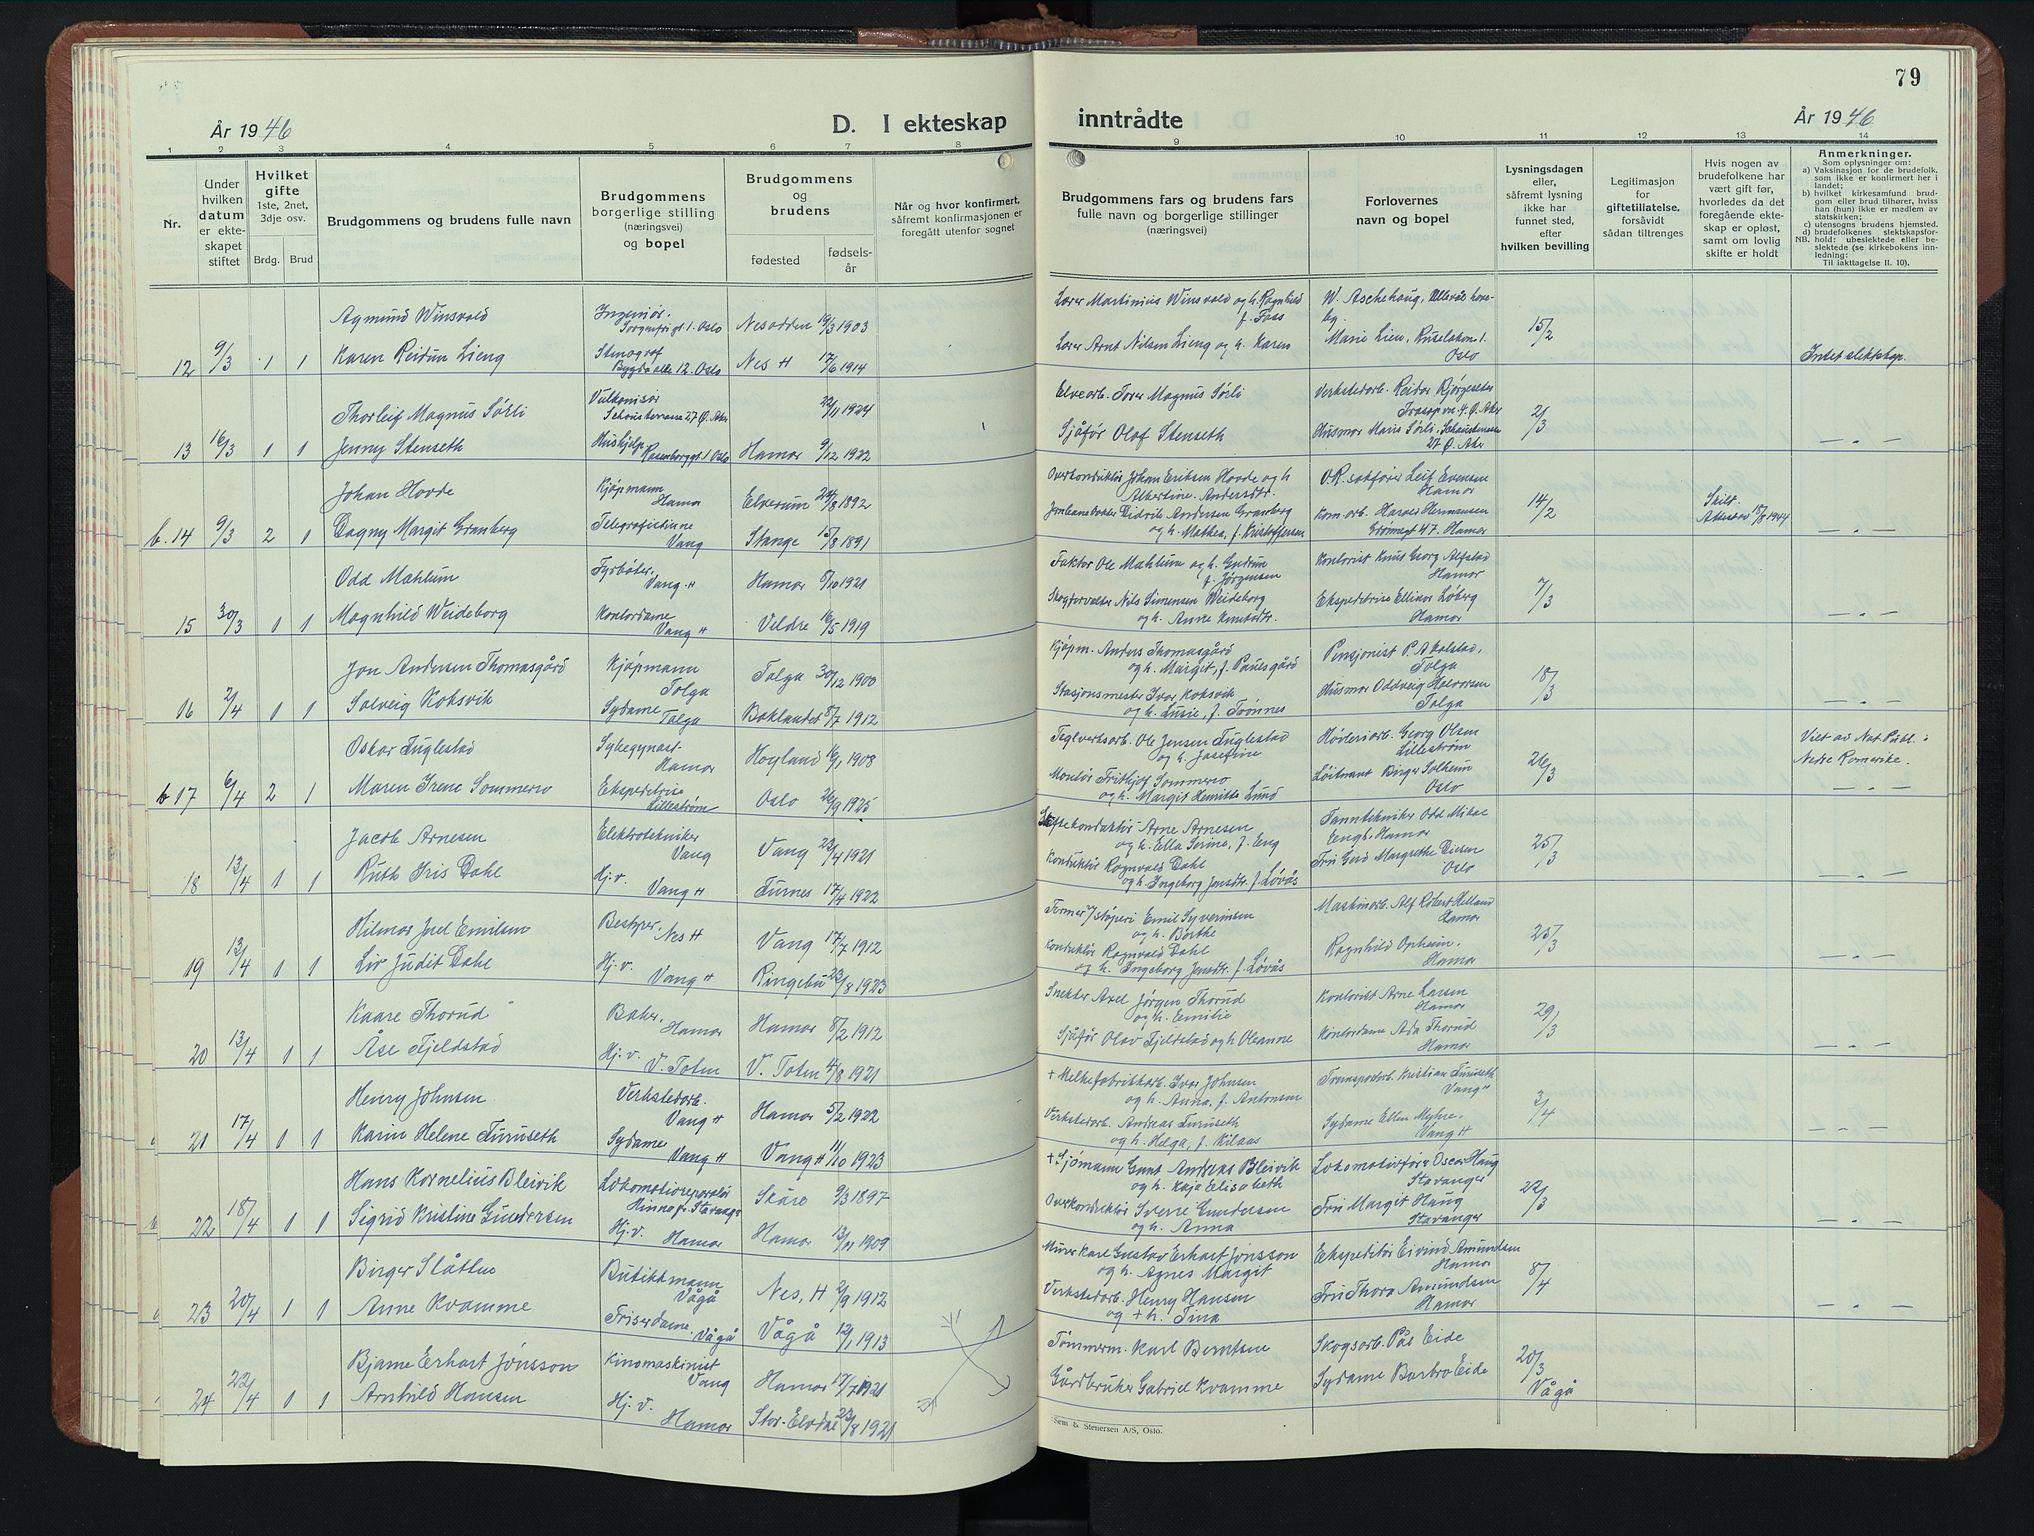 79
År 1946
D. I ekteskap inntrådte
År 1946
1 2 3 4 5 6 7 8 9 10 11 12 13 14
Nr.
Under hvilken datum er ekteskapet stiftet
Hvilket gifte
1ste, 2net, 3dje osv.
Brdg. Brud
Brudgommens og brudens fulle navn
Brudgommens borgerlige stilling (næringsvei) og bopel
Brudgommens og brudens
fødested
fødselsår
Når og hvor konfirmert, såfremt konfirmasjonen er foregått utenfor sognet
Brudgommens fars og brudens fars fulle navn og borgerlige stillinger (næringsvei)
Forlovernes navn og bopel
Lysningsdagen eller, såfremt lysning ikke har funnet sted, efter hvilken bevilling
Legitimasjon for giftetillatelse, forsåvidt sådan tiltrenges
Hvis nogen av brudefolkene har vært gift før, hvorledes da det foregående ekteskap er opløst, samt om lovlig skifte er holdt
Anmerkninger.
Som oplysninger om:
a) Vaksinasjon for de brudefolk, som ikke er konfirmert her i landet;
b) hvilket kirkesamfund brudgom eller brud tilhører, hviss han (hun) ikke er medlem av statskirken;
c) utensogns brudens hjemsted.
d) brudefolkenes slektskapsforhold: ubeslektede eller beslektede (se kirkebokens innledning;
NB.
Til iakttagelse II. 10).
12 9/3 1 1
Agmund Winsvold Ingeniør. Sorgenfrigt 1. Oslo Nesodden 19/3 1903
Karen Reidun Lieng Stenograf Bygdø alle 12. Oslo Nes H 17/6 1914
Lærer Martinius Winsvold og h. Ragnhild f. Foss
Lærer Arnt Nilsen Lieng og h. Karen
W. Aschehoug, Ullevål haveby.
Marie Lien, Oslo
15/2
Intet slektskap.
13 16/3 1 1
Thorleif Magnus Sørli Vulkanisør 22/11 1924
Jenny Stenseth Hushjelp Rosenborggt 1 Oslo Hamar 9/12 1922
Elvearb. Tore Magnus Sørli
Sjåfør Olaf Stenseth
Verkstedarb. Reidar
Husmor Maria Sørli, 27 Ø. Aker
2/3
— „ —
b. 14 9/3 2 1
Johan Hovde Kjøpmann Hamar Elverum 24/8 1892
Dagny Margit Granberg Telegrafistinne Vang Stange 15/8 1891
Overkonduktør Johan Eriksen Hovde og h Albertine Andersdtr.
Didrik Andersen Granberg og h. Mathea, f. Kristoffersen
O.R. sakfører Leif Evensen Hamar
Kom. arb. Harald Hermansen Grønnegt 47. Hamar
14/2
Skilt. Attestert 18/8 1944
— „ —
15 30/3 1 1
Odd Mæhlum Fyrbøter. Vang H Hamar 8/10 1921
Magnhild Weideborg Kontordame Vang H Veldre 16/5 1919
Faktor Ole Mæhlum og h. Gudrun f. Jørgensen
Skogforvalter Nils Simensen Weideborg og h. Anne Knutsdtr.
Kontorist Knut Georg Alfstad Hamar
Ekspeditrise Ellinor Løberg Hamar
7/3
— „ —
16 2/4 1 1
Jon Andersen Thomasgård Kjøpmann Tolga Tolga 30/12 1900
Solveig Koksvik Sydame Tolga Baklandet 8/7 1912
Kjøpm. Anders Thomasgård og h. Margit, f. Paulsgård
Stasjonsmester Ivar Koksvik og h. Lusie, f. Trønnes
Pensjonist P. Akelstad, Tolga
Husmor Oddveig Halvorsen Tolga
18/3
— „ —
b 17 6/4 2 1
Oskar Fuglestad Sykegymast- Hamar Høyland 16/1 1908
Maren Irene Sommerro Ekspeditrise Lillestrøm Oslo 26/9 1925
Teglverksarb. Ole Jensen Fuglestad og h. Josefine
Montør Frithjof Sommerro og h. Margit Henritte Lund
Georg Olsen Lillestrøm
Løitnant Birger Solheim Oslo
26/3
Viet av Not. Publ. i Nedre Romerike.
— „ —
18 13/4 1 1
Jacob Arnesen Elektrotekniker Vang Vang 23/4 1921
Ruth Iris Dahl Hj. v. Vang H Furnes 17/4 1922
Skiftekonduktør Arne Arnesen og h. Ella Serine, f. Eng
Konduktør Ragnvald Dahl og h. Ingeborg Jensdtr. f. Løvås
Tanntekniker Odd Mikael Eng. Hamar
Fru Gerd Margrethe Diesen Oslo
25/3
— „ —
19 13/4 1 1
Hilmar Juel Emilsen Bestyrer. Nes H Vang 17/7 1912
Liv Judit Dahl Hj. v. Vang H Ringebu 23/8 1923
Former i støperi Emil Syverinsen og h. Borthe
Konduktør Ragnvald Dahl og h. Ingeborg Jensdtr. f. Løvås
Maskinarb. Alf Robert Helland Hamar
Ragnhild Opheim. Hamar
25/3
— „ —
20 13/4 1 1
Kaare Thorud Baker. Hamar Hamar 8/2 1912
Åse Fjeldstad Hj. v. V. Toten V. Toten 4/8 1921
Snekker Axel Jørgen Thorud og h. Emilie
Sjåfør Olav Fjeldstad og h. Oleanne
Kontorist Arne Larsen Hamar
Kontordame Ada Thorud Hamar
29/3
— „ —
21 17/4 1 1
Henry Johnsen Verkstedarb. Vang H Hamar 5/2 1922
Karin Helene Furuseth Sydame Vang H Vang H 11/10 1923
+ Melkefabrikkarb. Ivar Johnsen og h. Anna, f. Antonsen
Verkstedarb. Andreas Furuseth og h. Helga, f. Kilaas
Transportarb. Kristian Furuseth Vang H
Sydame Ellen Myhre. Vang H
3/4
— „ —
22 18/4 1 1
Hans Kornelius Bleivik Lokomotivreparatør Hinna pr. Stavanger Skåre 9/3 1897
Sigrid Kristine Gundersen Hj. v. Hamar Hamar 13/11 1909
+ Sjømann Gunt Andreas Bleivik og h. Kaja Elisabeth
Overkonduktør Sverre Gundersen og h. Anna
Lokomotivfører Oscar Haug Stavanger
Fru Margit Haug Stavanger
22/3
— „ —
23 20/4 1 1
Birger Slåtten Butikkmann Vågå Nes, H 2/9 1912
Anne Kvamme Friserdame. Vågå Vågå 12/1 1913
Murer Karl Gustav Erhart Jonsson og h. Agnes Margit
Verkstedarb. Henry Hansen og + h. Tina
Ekspeditør Eivind Amundsen Hamar
Fru Thora Amundsen Hamar
8/4
— „ —
24 22/4 1 1
Bjarne Erhart Jonsson Kinomaskinist Vang Hamar 17/7 1921
Arnhild Hansen Hj. v. Hamar Stor-Elvdal 23/8 1921
Tømmerm. Karl Berntsen
Gårdbruker Gabriel Kvamme
Skogsarb. Pål Eide
Sydame Borbro Eide
20/3 Vågå
Sem & Stenersen A/S, Oslo.